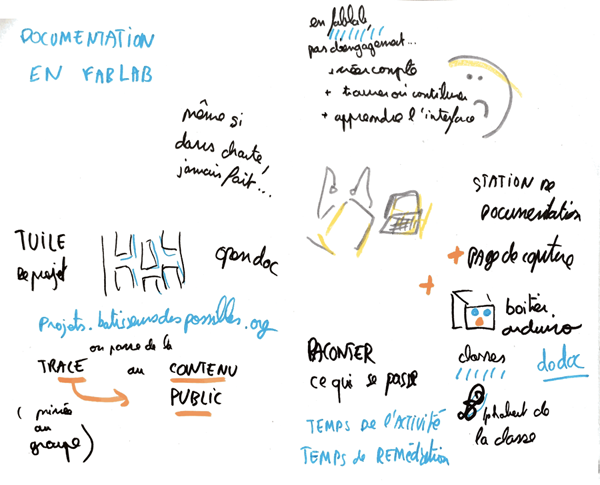 DOCUMENTATION
EN FABLAB
même si
dans charte,
jamais fait...
en fablab,
pas d'engagement...
+ créer compte
+ trouver où contribuer
+ apprendre l'interface
STATION DE
DOCUMENTATION
+ page de capture
+
boitier
arduino
TUILE
de projet
opendoc
projets.batisseursdespossibles.org
on passe de la
TRACE au CONTENU
PUBLIC
( privée
au
groupe)
RACONTER
ce qui se passe
TEMPS DE L'ACTIVITÉ
TEMPS DE REMÉDIATION
classes
dodoc
alphabet de
la classe